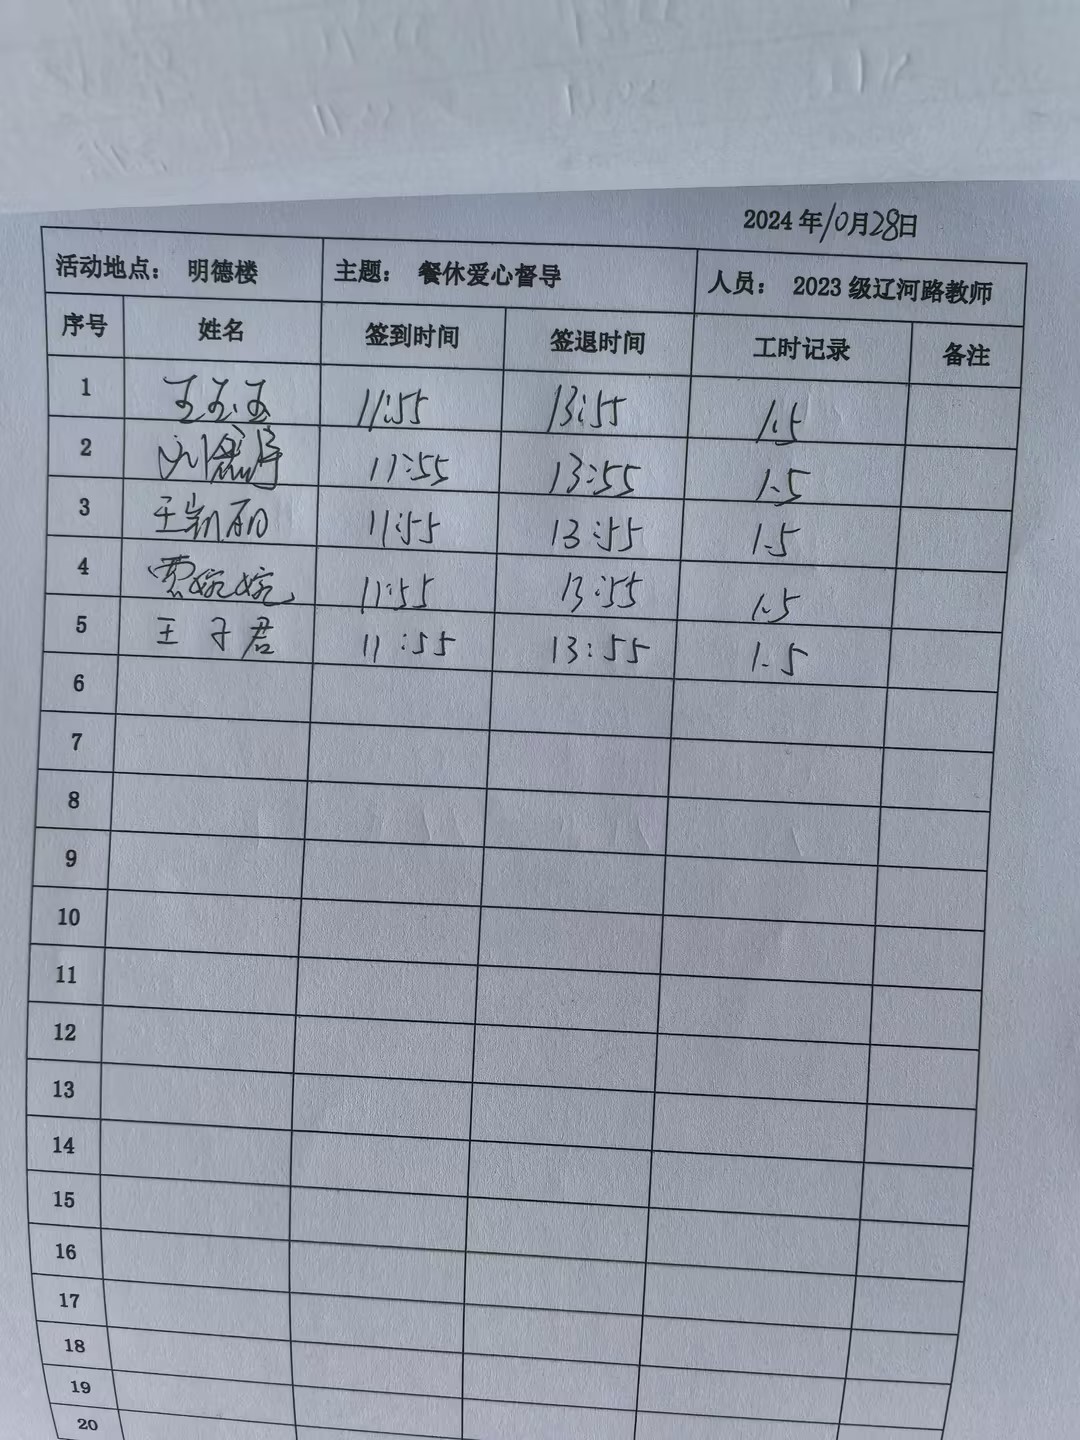 2024年10月28日
活动地点： 明德楼 主题： 餐休爱心督导 人员： 2023级辽河路教师
序号 姓名 签到时间 签退时间 工时记录 备注
1 王玉玉 11:55 13:55 1.5
2 11:55 13:55 1.5
3 王凯丽 11:55 13:55 1.5
4 贾婉婉 11:55 13:55 1.5
5 王子君 11:55 13:55 1.5
6
7
8
9
10
11
12
13
14
15
16
17
18
19
20